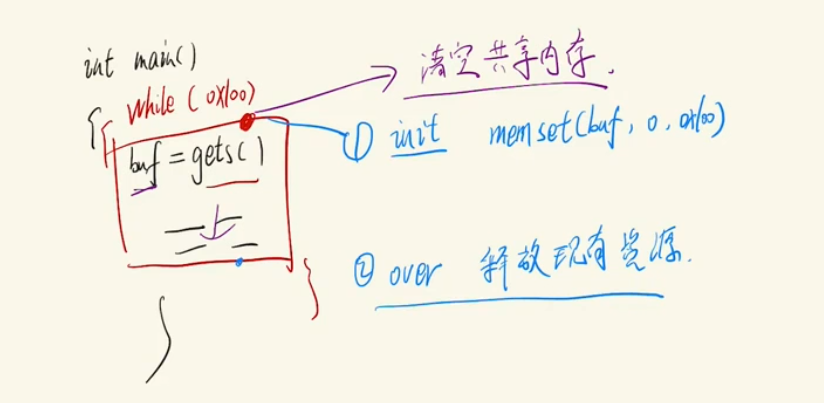 int main()
{
while (0x100)
{
buf = gets()
}
}
清空共享内存.
① init memset(buf, 0, 0x100)
② over 释放现有资源.